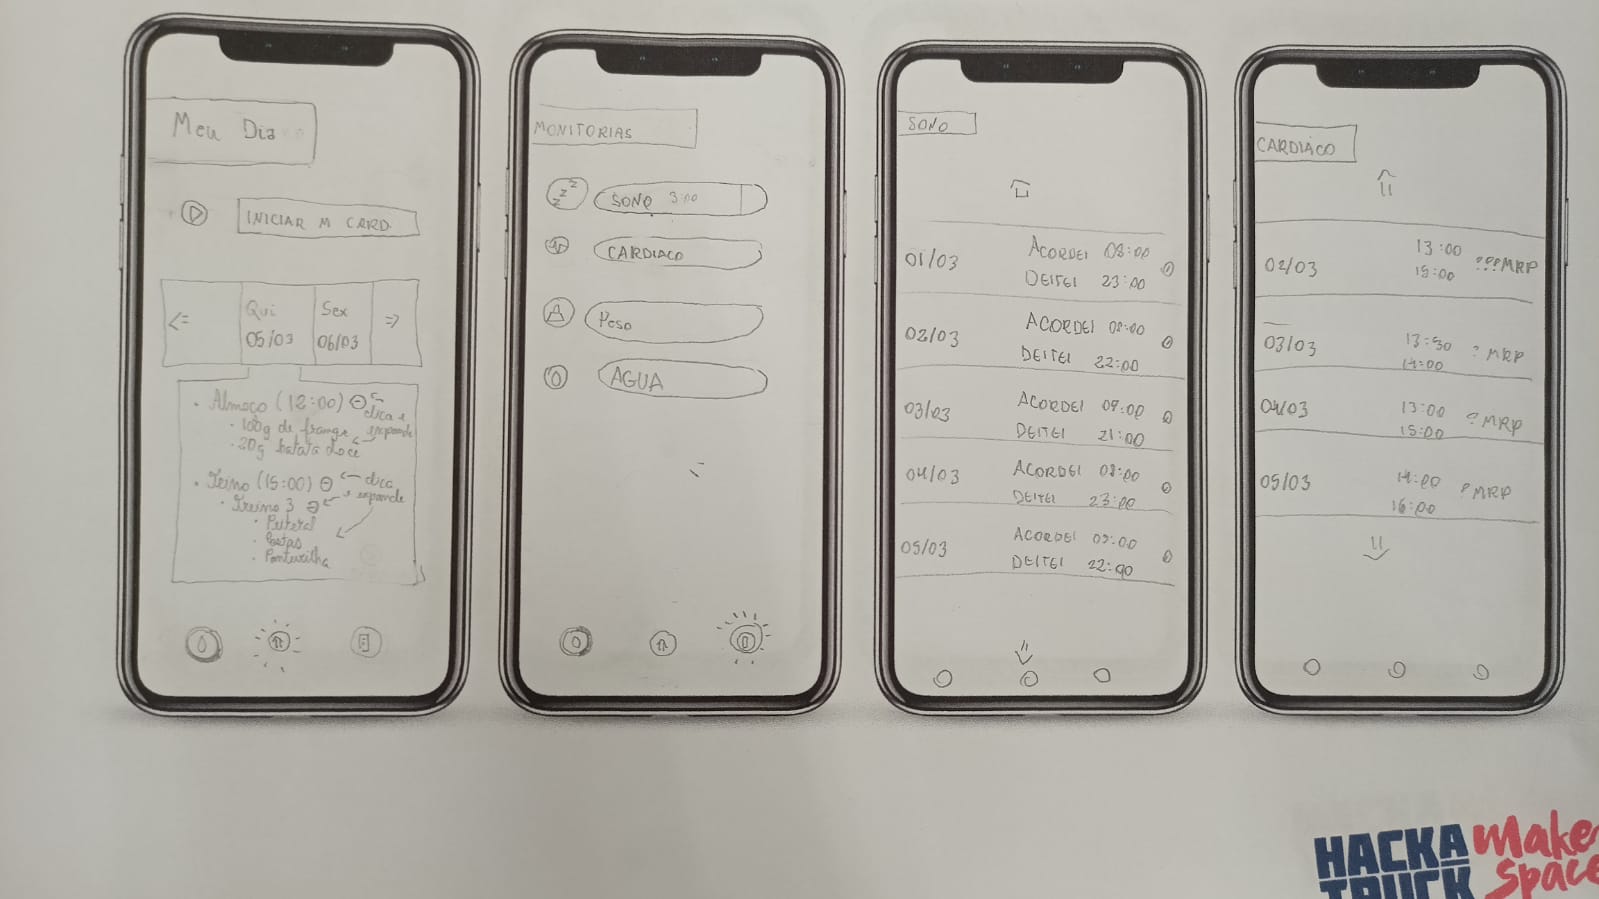 Meu Dia
INICIAR M CARD.
Qui
05/03
Sex
06/03
• Almoço (12:00)
clica e expande
• 100g de frango
• 20g batata doce
• Treino (15:00)
clica e expande
• Treino 3
• Peitoral
• Costas
• Panturrilha
MONITORIAS
zzz
SONO 3:00
CARDIACO
Peso
AGUA
SONO
01/03
ACORDEI 08:00
DEITEI 23:00
02/03
ACORDEI 08:00
DEITEI 22:00
03/03
ACORDEI 09:00
DEITEI 21:00
04/03
ACORDEI 08:00
DEITEI 23:00
05/03
ACORDEI 09:00
DEITEI 22:00
CARDIÁCO
02/03
13:00
15:00
???MRP
03/03
13:30
14:00
? MRP
04/03
13:00
15:00
? MRP
05/03
14:00
16:00
? MRP
HACKA
TRUCK
Make
Space